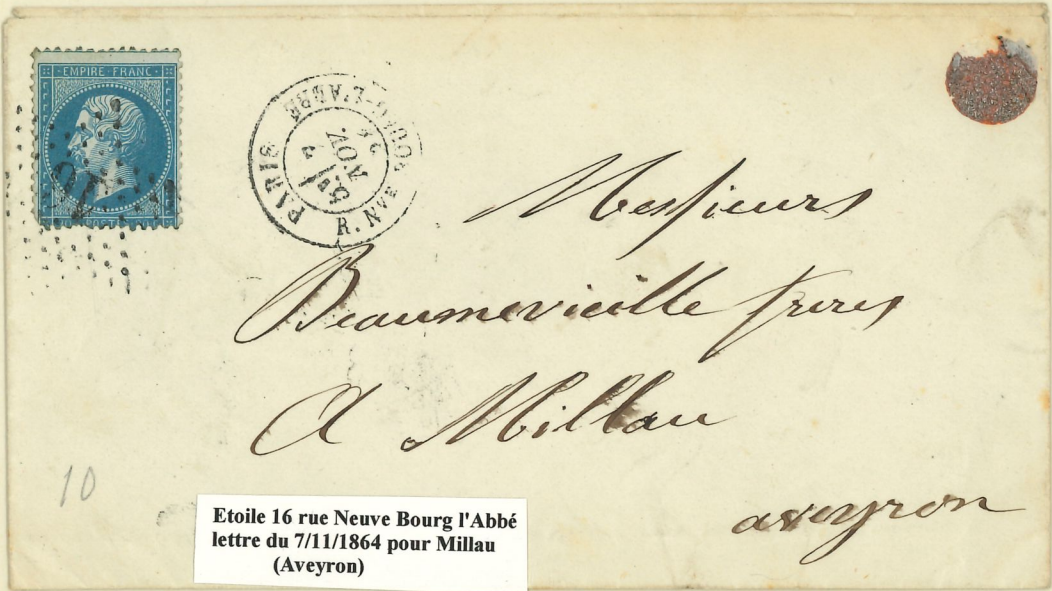 EMPIRE FRANC.
16
PARIS
R. NVE BOURG-L'ABBE
7
NOV.
64
Messieurs
Beaumevieille freres
A Millau
aveyron
10
Etoile 16 rue Neuve Bourg l'Abbé
lettre du 7/11/1864 pour Millau
(Aveyron)